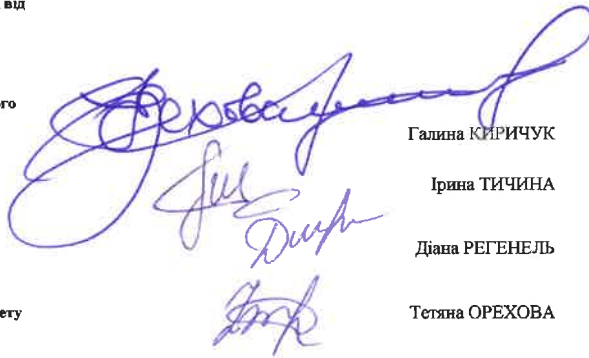 від
го
Галина КИРИЧУК
Ірина ТИЧИНА
Діана РЕГЕНЕЛЬ
ету
Тетяна ОРЕХОВА